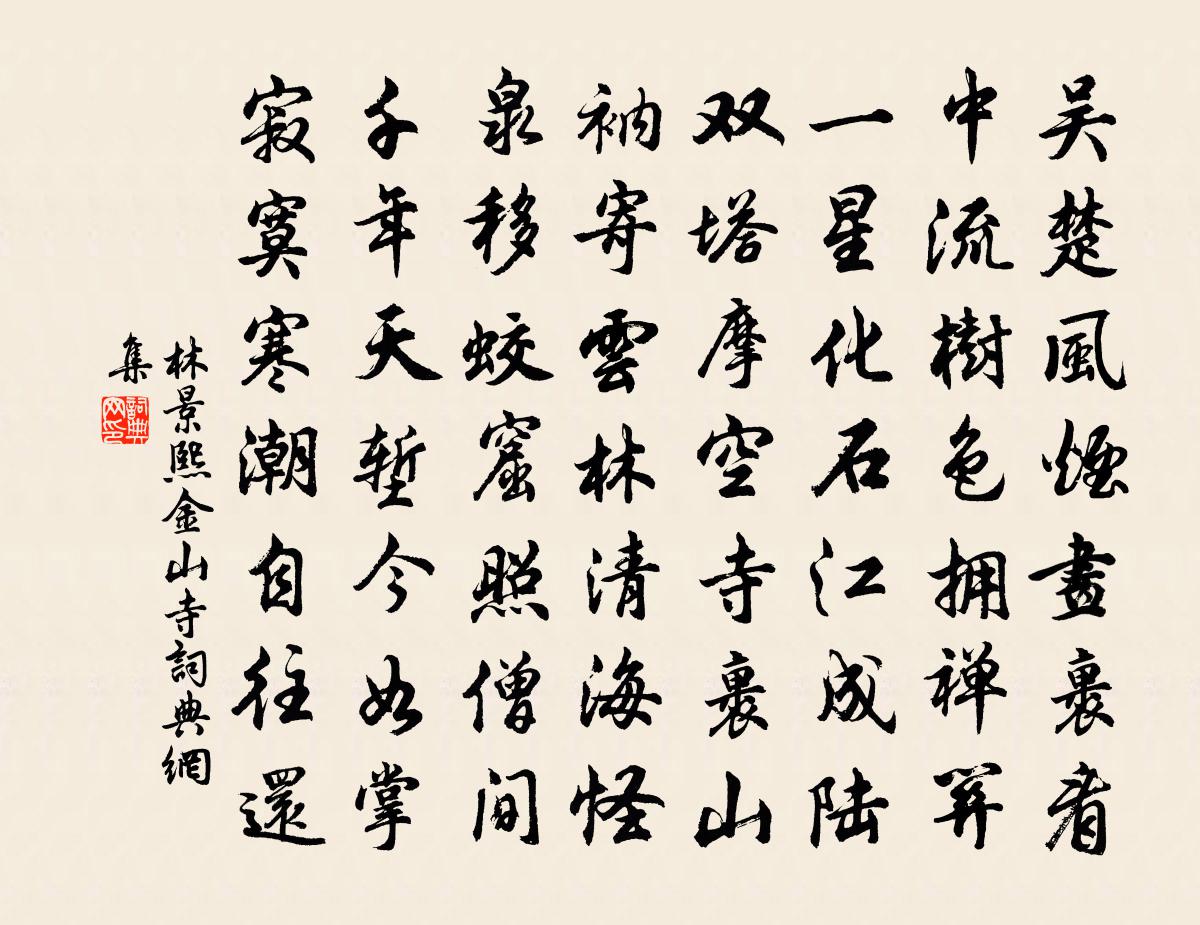 吴楚風煙畫裹看
中流樹色拥禅關
一星化石江成陆
双塔摩空寺裹山
衲寄雲林清海怪
泉移蛟窟照僧間
千年天堑今如掌
寂寞寒潮自往還
林景熙金山寺詞典網
集
詞典
网印